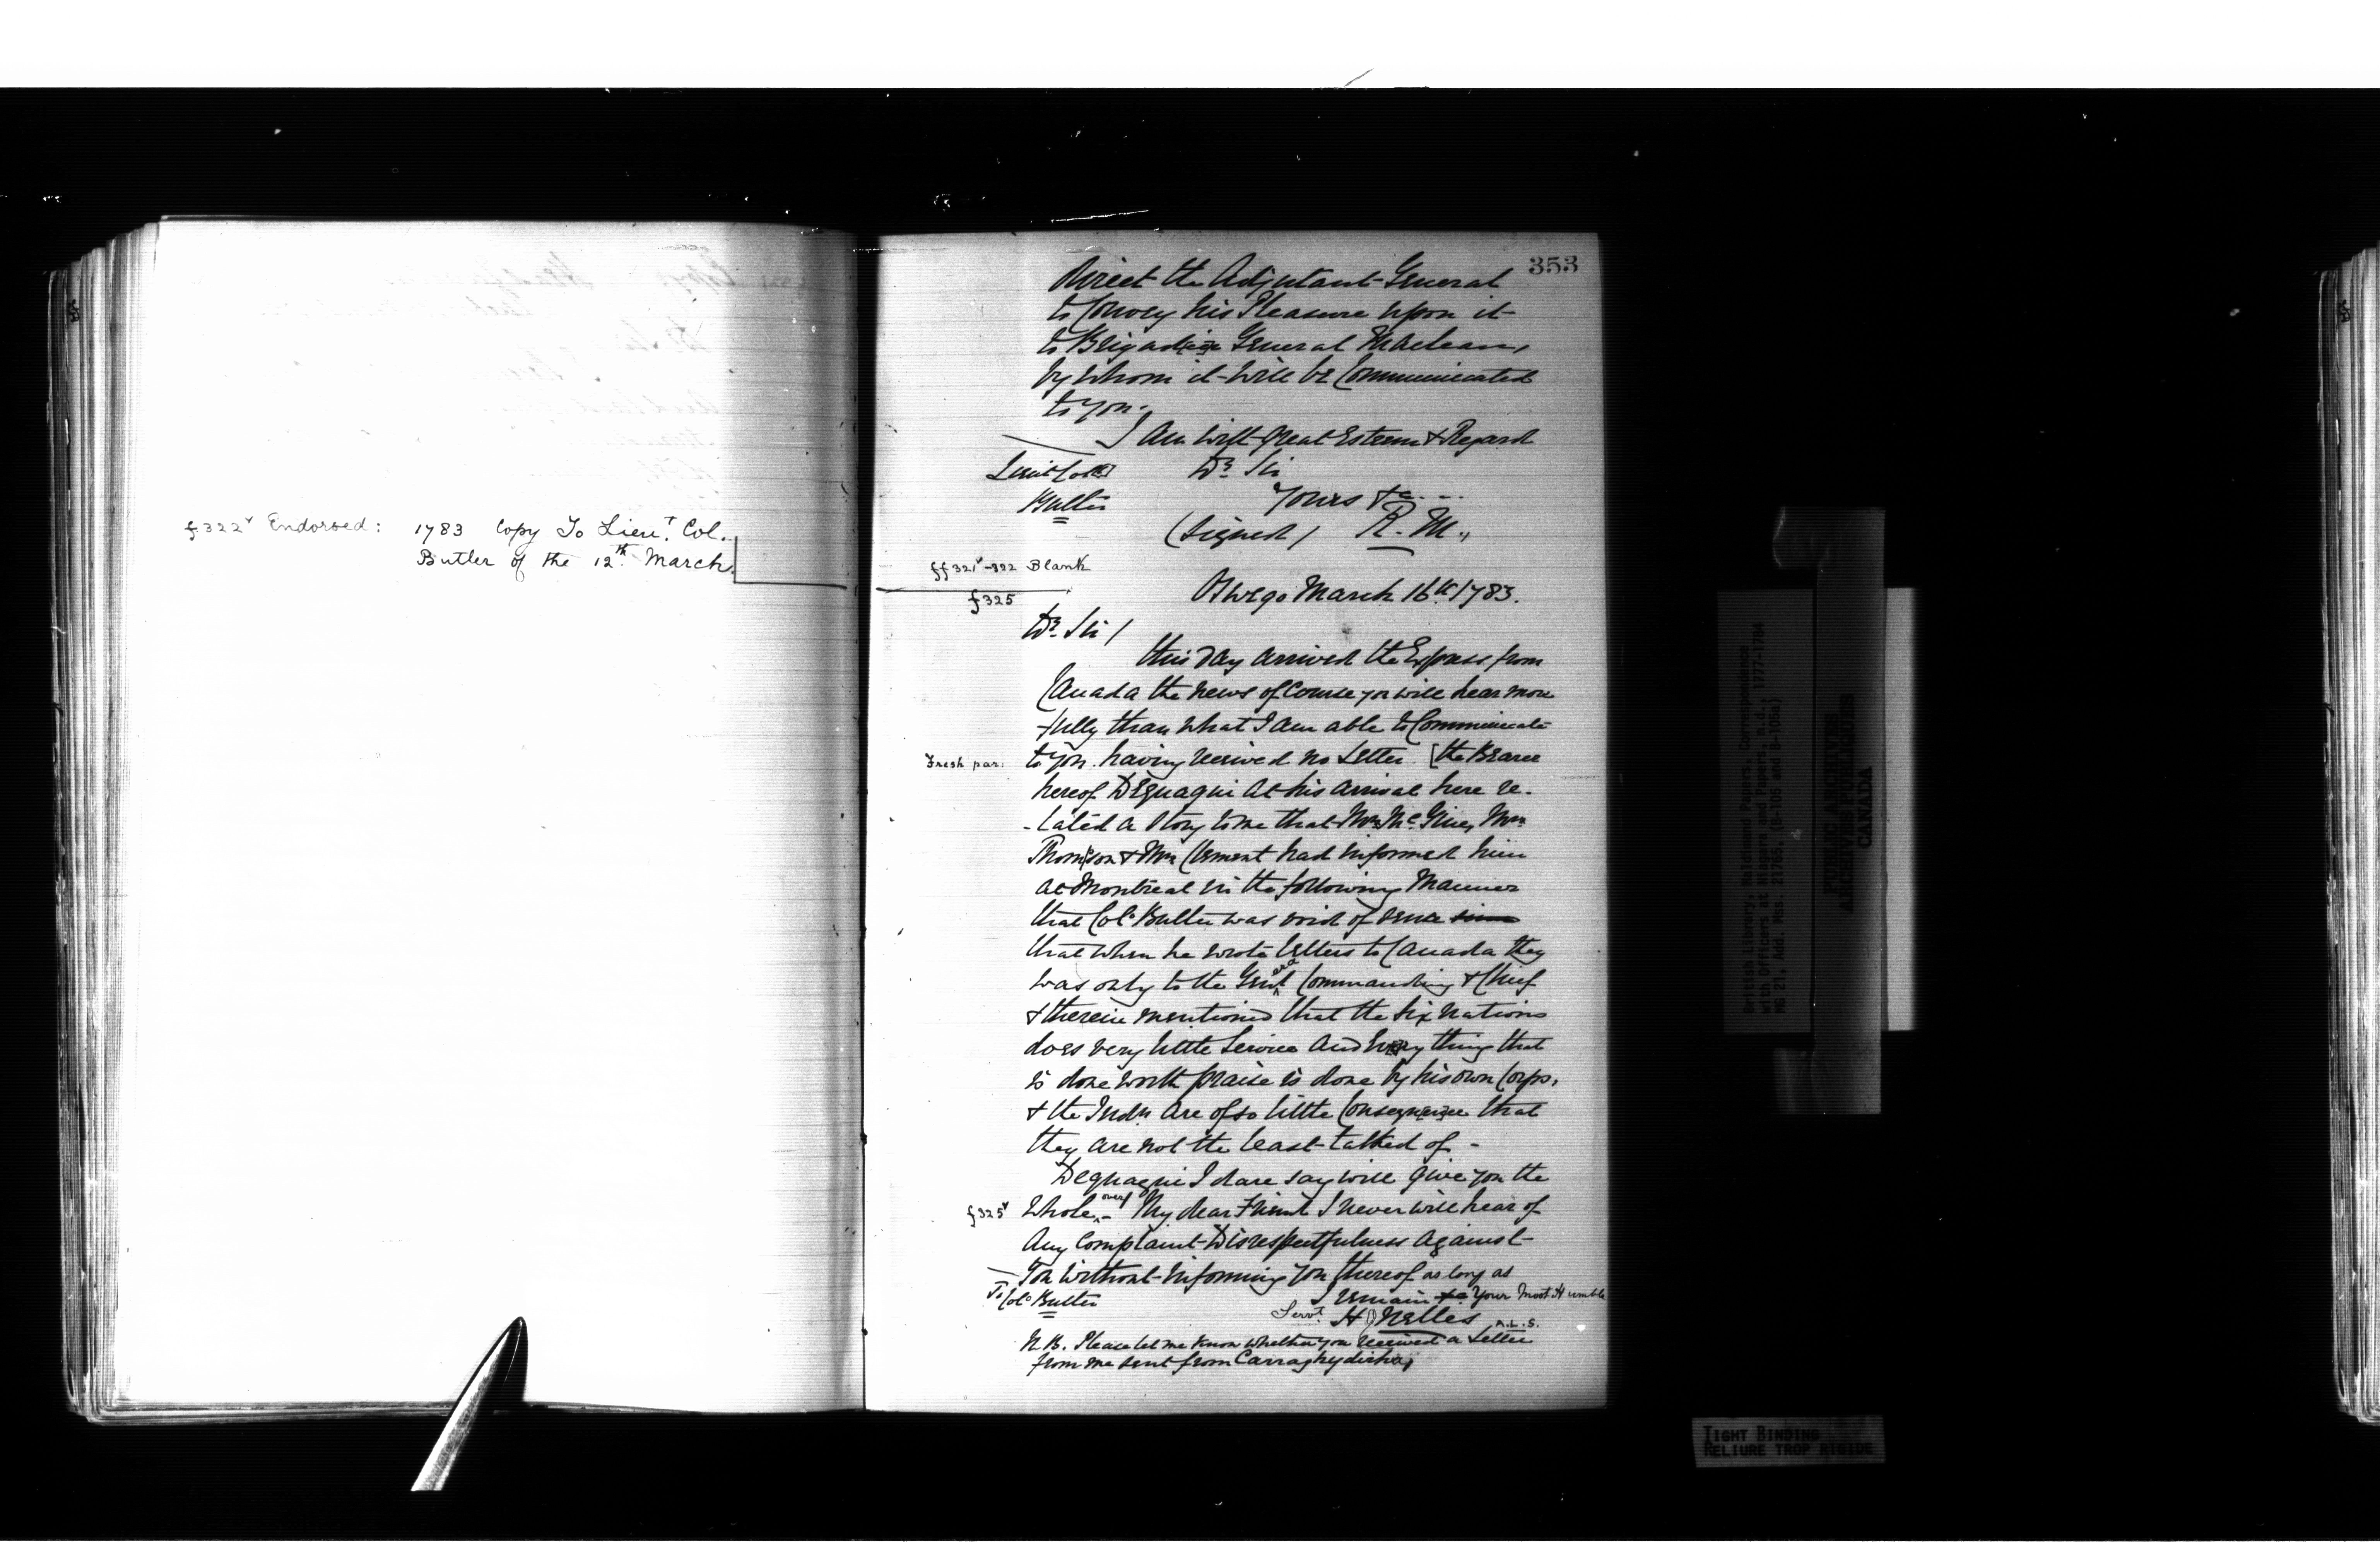 f322v Endorsed: 1783 Copy To Lieut. Col.
Butler of the 12th. March.
353
direct the Adjutant General
to Convey his Pleasure upon it
to Brigadier General Maclean,
by whom it will be Communicated
to you.
I Am with great Esteem & Regard
Lieut Col
Butler
Dr. Sir
Yours &c ...
(Signed) R. M.,
ff321v-322 Blank
f325
Oswego March 16th 1783.
Dr. Sir/
this Day arrived the Express from
Canada the news of Course you will hear more
fully than what I am able to Communicate
Fresh par. to you. having received no Letter. [the Bearer
hereof Dequaqui At his arrival here re-
-lated a Story to me that Mr. Mc.Ginn, Mr.
Thompson & Mr. Clement had informed him
at Montreal in the following Manner
that Colo. Butler was void of sense
that when he wrote letters to Canada they
was only to the General Commanding & Chief
& therein mentioned that the Six Nations
does very little Service And every thing that
is done worth praise is done by his own Corps,
& the Indn. are of so little Consequence that
they are not the least talked of -
Dequaqui I dare say will give you the
f325v Whole over - My dear Friend I never will hear of
Any Complaint Disrespectfulness against
You without informing you thereof as long as
To Colo. Butler
I remain &c Your Most Humble
Servt. H Nelles A.L.S.
N B. Please let me know whether you received a Letter
from me sent from
British Library, Haldimand Papers, Correspondence
with Officers at Niagara and Papers, n.d., 1777-1784
MG 21, Add. Mss. 21765, (B-105 and B-105a)
PUBLIC ARCHIVES
ARCHIVES PUBLIQUES
CANADA
TIGHT BINDING
RELIURE TROP RIGIDE